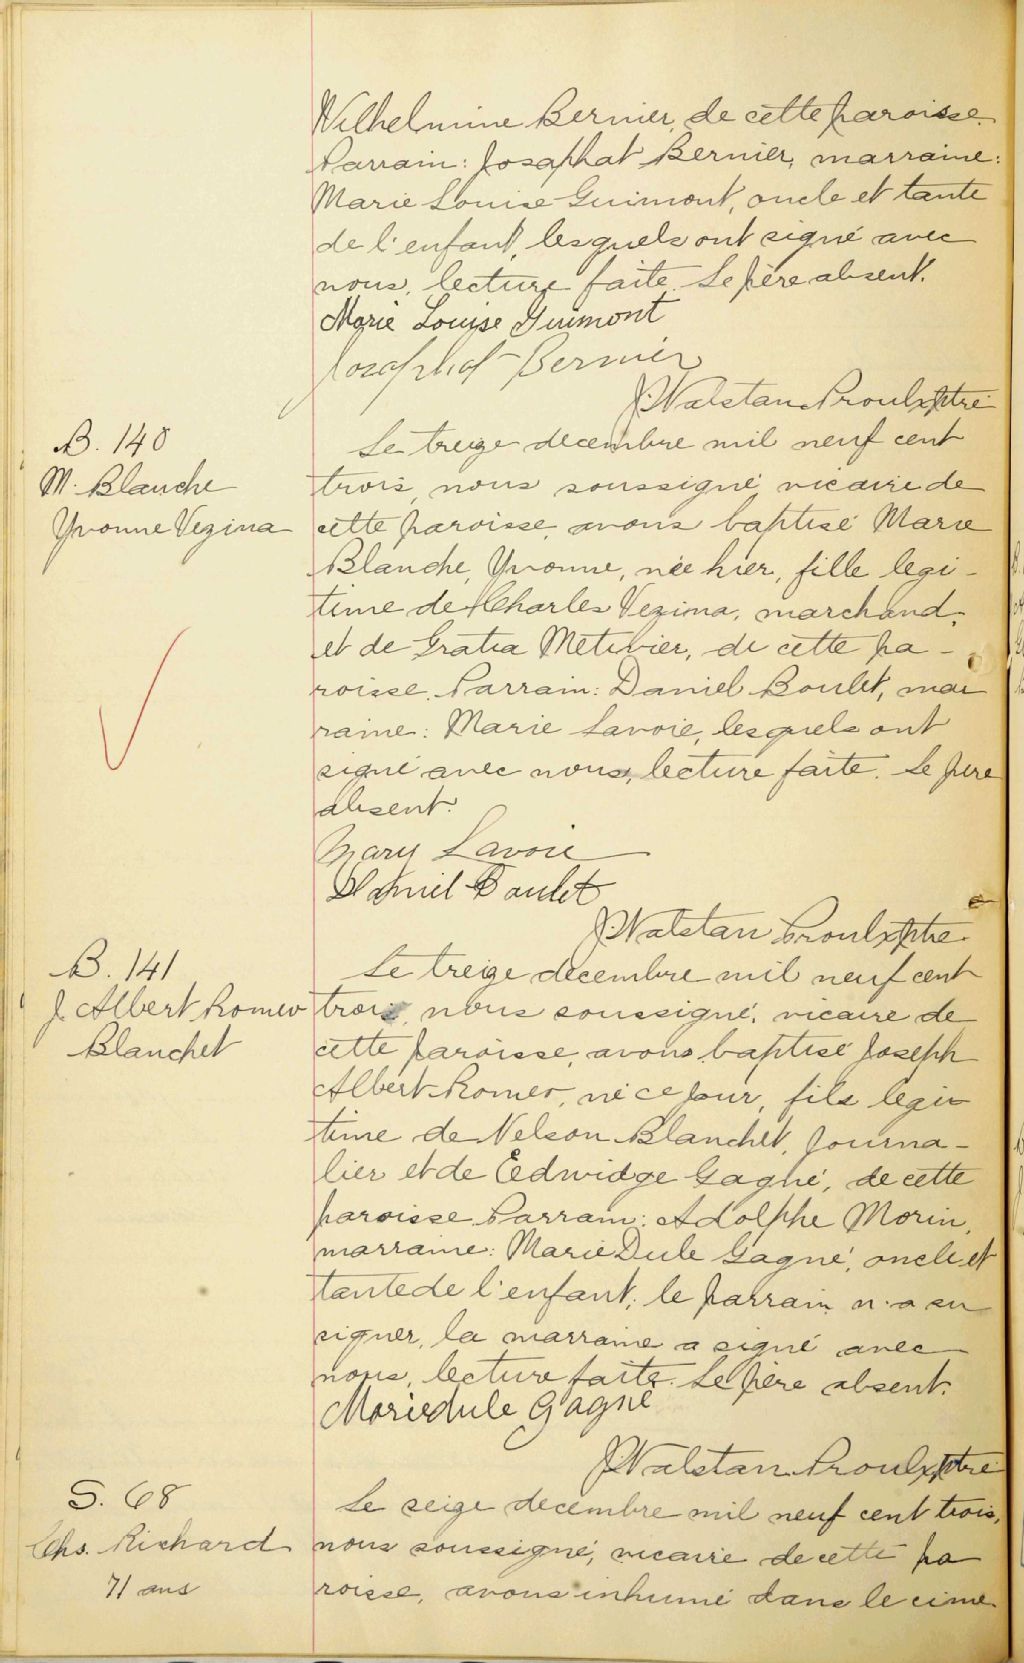 Wilhelmine Bernier, de cette paroisse.
Parrain: Josaphat Bernier, marraine:
Marie Louise Guimont, oncle et tante
de l'enfant, lesquels ont signé avec
nous, lecture faite. Le père absent.
Marie Louise Guimont
Josaphat Bernier
J. Walstan Proulx, ptre
B. 140
M. Blanche
Yvonne Vezina
Le treize decembre mil neuf cent
trois, nous soussigné, vicaire de
cette paroisse, avons baptisé Marie
Blanche, Yvonne, née hier, fille legi-
time de Charles Vezina, marchand,
et de Gratia Metivier, de cette pa-
roisse. Parrain: Daniel Boulet, mar
raine: Marie Lavoie, lesquels ont
signé avec nous, lecture faite. Le père
absent.
Mary Lavoie
Daniel Boulet
J. Walstan Proulx, ptre.
B. 141
J. Albert Romeo
Blanchet
Le treize decembre mil neuf cent
trois, nous soussigné, vicaire de
cette paroisse, avons baptisé Joseph
Albert Romeo, né ce jour, fils legi-
time de Nelson Blanchet, journa-
lier et de Edwidge Gagné, de cette
paroisse. Parrain: Adolphe Morin,
marraine: Marie Dule Gagné, oncle et
tante de l'enfant, le parrain n'a su
signer, la marraine a signé avec
nous, lecture faite. Le père absent.
Marie dule Gagné
J. Walstan Proulx, ptre
S. 68
Chs. Richard
71 ans
Le seize decembre mil neuf cent trois,
nous soussigné, vicaire de cette pa
roisse, avons inhumé dans le cime